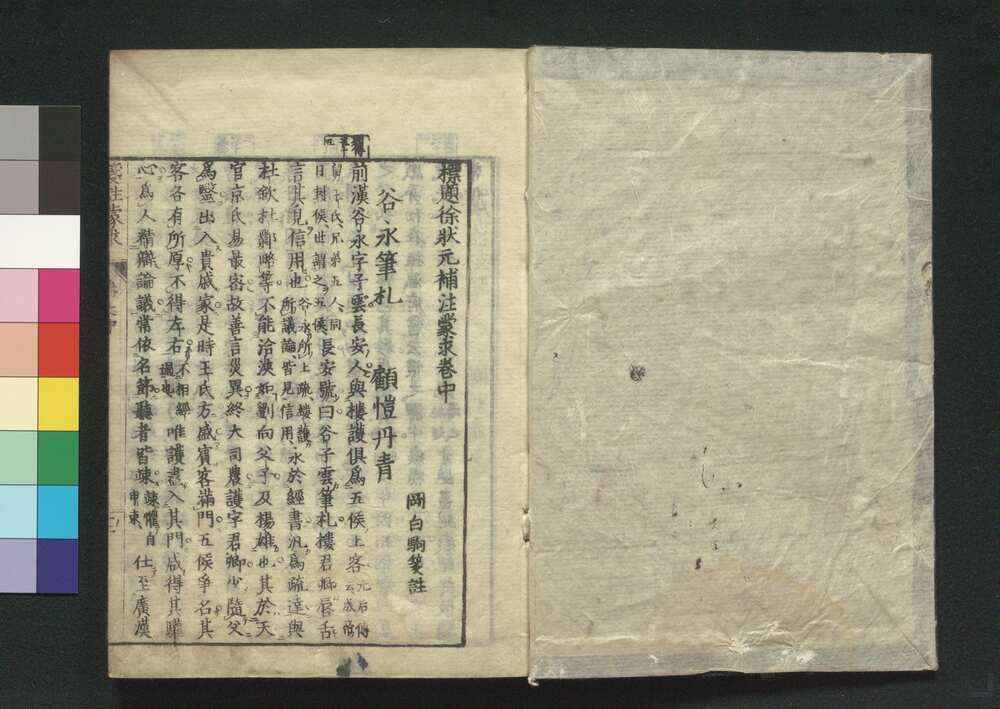 標題徐狀元補注蒙求卷中
岡白駒箋註
谷永筆札　顧愷丹青
前漢谷永字子雲長安人與樓護俱爲五侯上客元后傳云成帝
舅王氏兄弟五人同
日封侯世謂之五侯長安號曰谷子雲筆札樓君卿唇舌
言其見信用也谷永所上疏樓護所議論皆見信用永於經書汎爲疏達與
杜欽杜鄴略等不能洽浹如劉向父子及揚雄也其於天
官京氏易最密故善言災異終大司農護字君卿少隨父
爲醫出入貴戚家是時王氏方盛賓客滿門五侯爭名其
客各有所厚不得左右不相經過也唯護盡入其門咸得其驩
心爲人精辯論議常依名節聽者皆竦竦懼自申束仕至廣漢
箋註蒙求